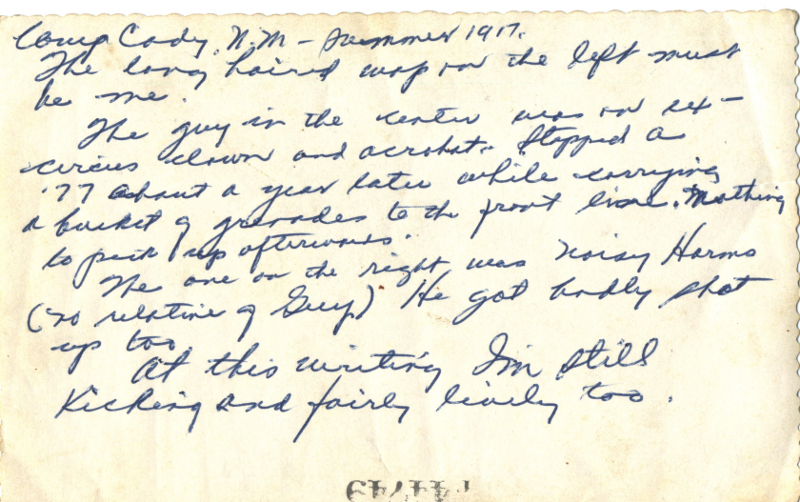 Camp Cody, N.M - Summer 1917.
The long haired wop on the left must
be me.
The guy in the center was an ex-
circus clown and acrobat. Stopped a
'77 about a year later while carrying
a bucket of grenades to the front line. Nothing
to pick up afterwards.
The one on the right was Noisy Harms
(no relative of Guy) He got badly shot
up too.
At this writing I'm still
Kicking and fairly lively too.